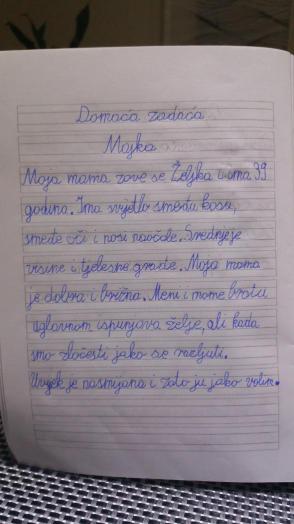 Domaća zadaća
Majka
Moja mama zove se Željka i ima 39
godina. Ima svjetlo smeđu kosu,
smeđe oči i nosi naočale. Srednje je
visine i tjelesne građe. Moja mama
je dobra i brižna. Meni i mome bratu
uglavnom ispunjava želje, ali kada
smo zločesti jako se naljuti.
Uvijek je nasmijana i zato ju jako volim.